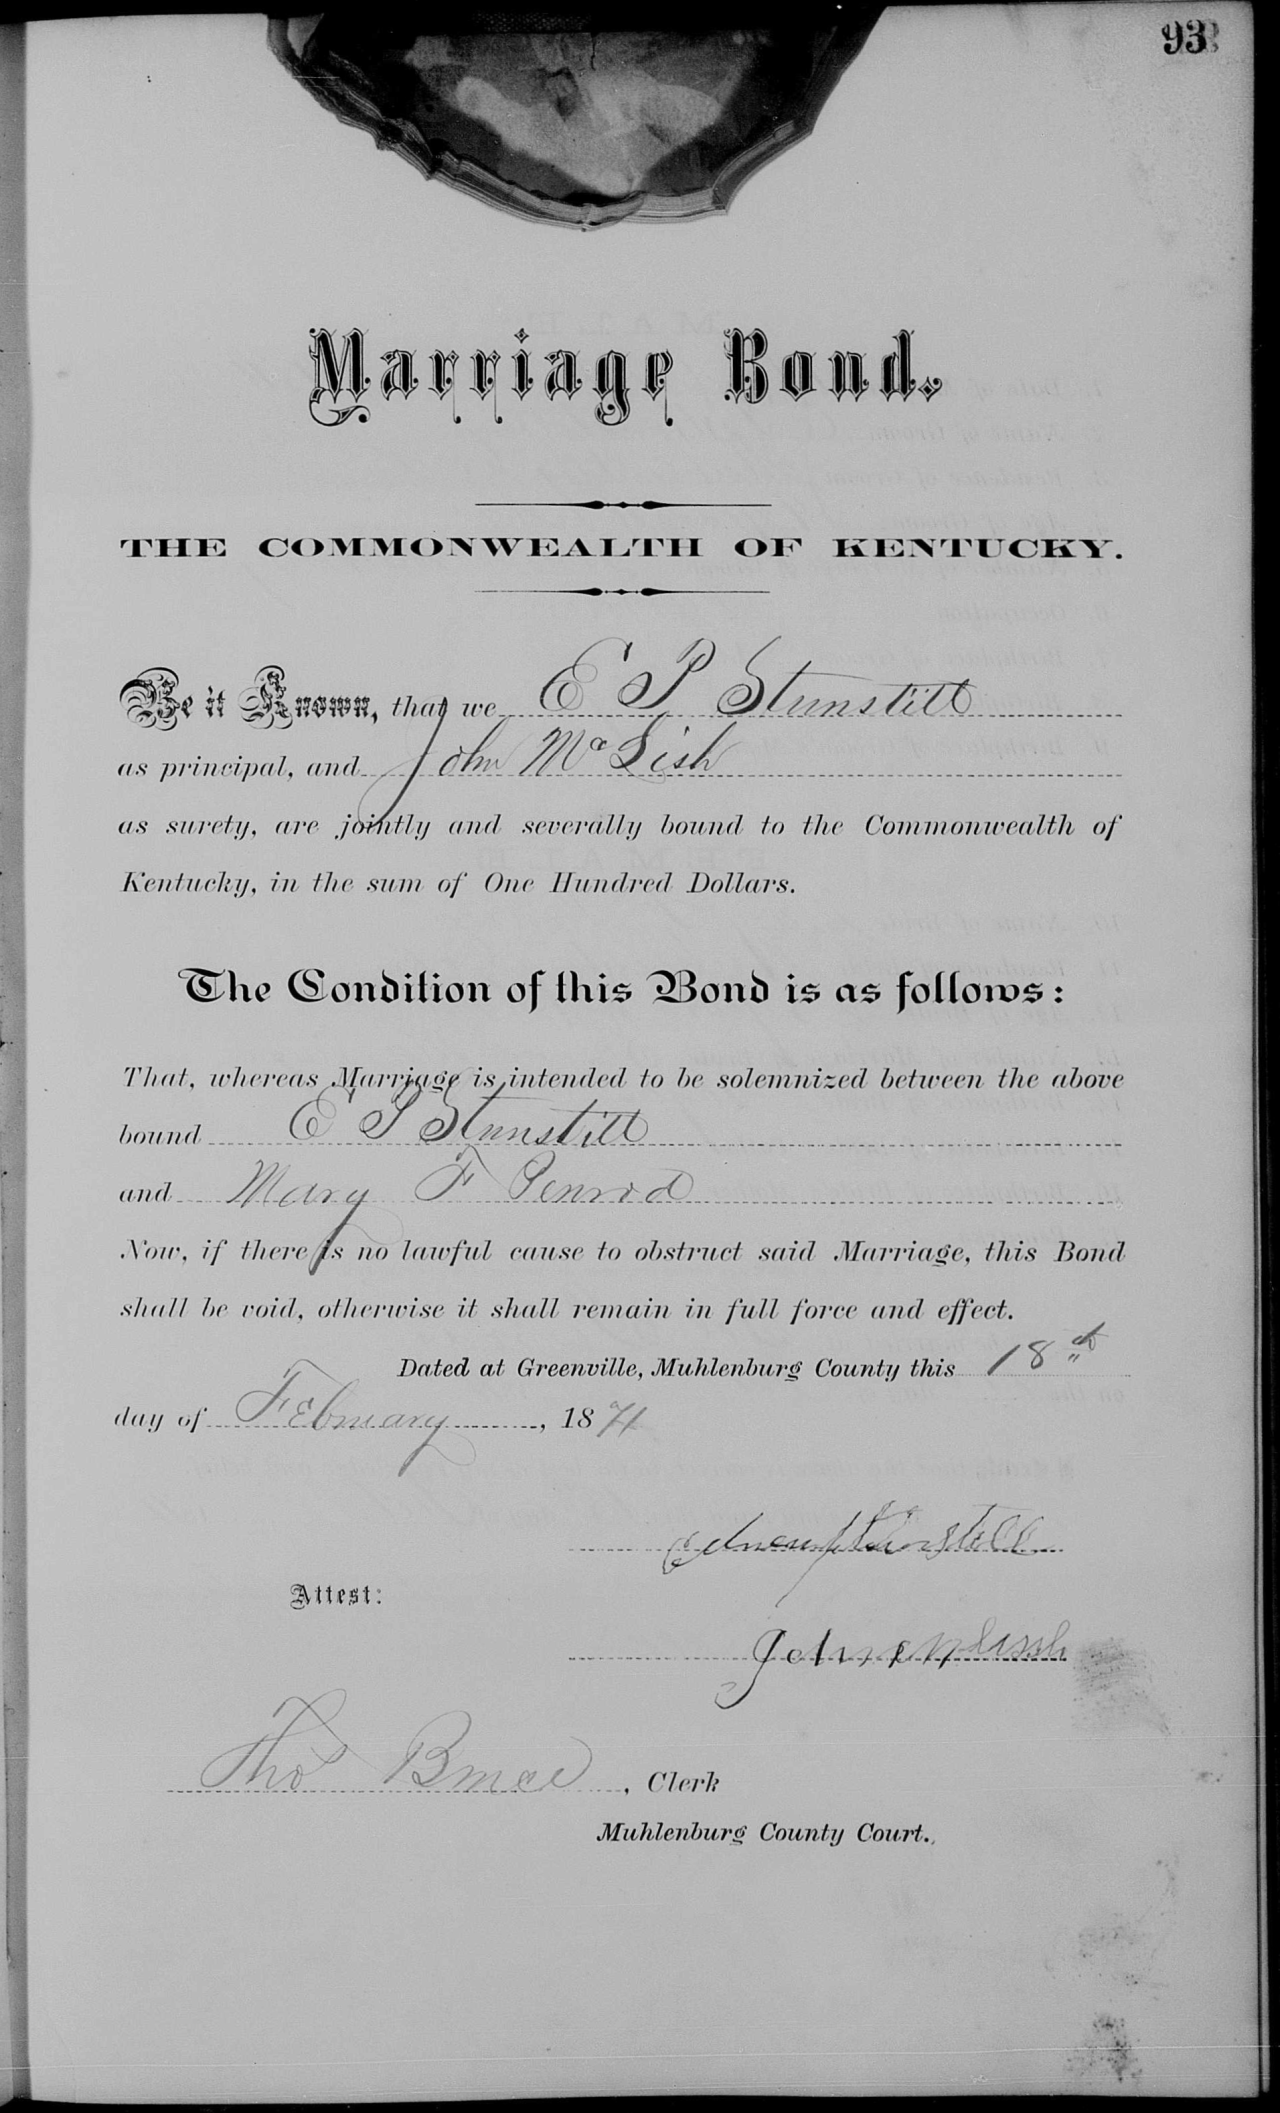 93
Marriage Bond.
THE COMMONWEALTH OF KENTUCKY.
Be it Known, that we E P Stunstill
as principal, and John McLish
as surety, are jointly and severally bound to the Commonwealth of
Kentucky, in the sum of One Hundred Dollars.
The Condition of this Bond is as follows:
That, whereas Marriage is intended to be solemnized between the above
bound E P Stunstill
and Mary F Penrod
Now, if there is no lawful cause to obstruct said Marriage, this Bond
shall be void, otherwise it shall remain in full force and effect.
Dated at Greenville, Muhlenburg County this 18th
day of February, 1871
Attest:
Tho Bruce, Clerk
Muhlenburg County Court.